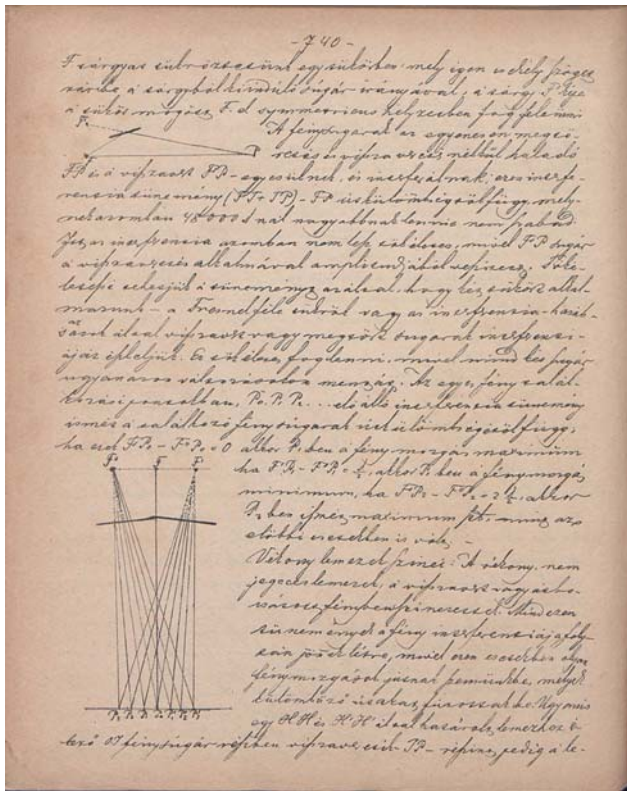 - 740 -
F sárgyas tükrözeteünk egy tükörben mely igen csekély szöget
a sárgyból kiinduló sugár irányával; a sárgy F képe
a tükör mögött F₁ symmetricus helyzetben fog feltenni
F₁ A fénysugarak az egyenesen megtö-
F P résés és vissza verés nélkül haladó
FP és a visszavert egyesülnek, és interferálnak; ezen interfe-
rencia tünemény (FT+TP)-FP útkülömbségtől függ, mely-
nek azomban 48000 nál nagyobbnak lennie nem szabad
Itt az interferencia azomban nem lesz tökéletes, mivel FP sugár
a visszaverés alkalmával amplitudjából veszít. Töké-
letessé tehetjük a tüneményt azáltal, hogy két tükört alkal-
mazunk - a Fresnel féle tükröt vagy az interferencia-hasáb-
az által visszavert vagy megtört sugarak interferenci-
áját észleljük. Ez tökéletes fog lenni, mivel mind két sugár
ugyanazon változásokon megy át. Az egyes fény talál-
kozási pontokban, P₀ P₁ P₂ ... előálló interferencia tünemény
ismét a találkozó fénysugarak útkülömbségétől függ;
ha ezek F'P₀ - F''P₀ = 0 akkor P₀ ben a fénymozgás maximum
F' F F'' ha F'P₁ - F''P₁ = akkor P₁ ben a fénymozgás
minimum, ha F'P₂ - F''P₂ = akkor
P₂ ben ismét maximum mint az
előbbi esetekben is volt. -
Vékony lemezek színei: A vékony, nem
jegeces lemezek, a visszavert vagy átbo-
csátott fényben színesek. Mind ezen
tünemények a fény interferentiája foly-
tán jönnek létre, mivel ezen esetekben olyan
fénymozgások jutnak szemünkbe, melyek
külömböző utakat futottak be. Ugyanis
egy HH és H'H' által határolt lemezhez ér-
kező OI fénysugár részben visszaverődik IP - részint pedig a le-